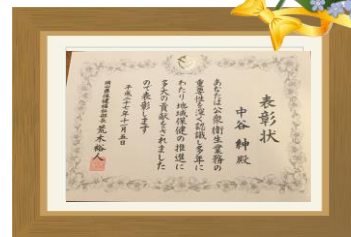 表彰状
中谷 紳殿
あなたは公衆衛生業務の
重要性を深く認識し多年に
わたり地域保健の推進に
多大の貢献をされました
ので表彰します
平成二十七年十一月五日
岡山県保健福祉部長 荒木裕人